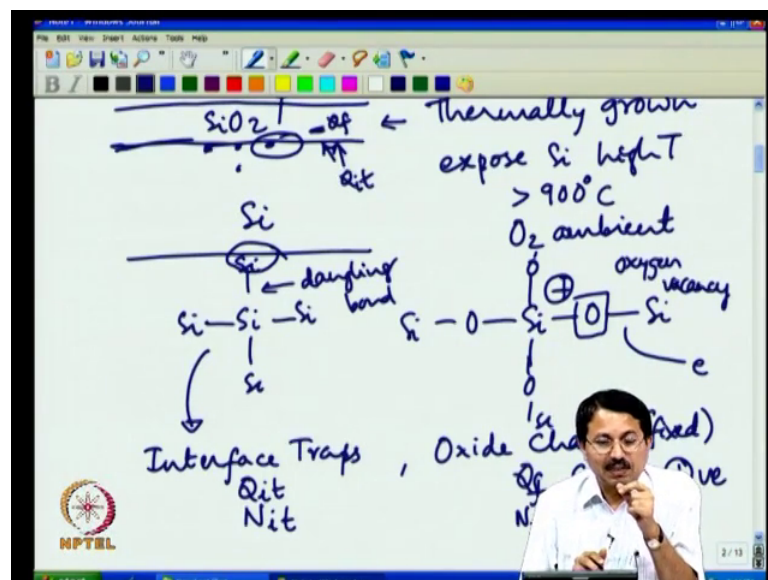 Note1 - Windows Journal
File Edit View Insert Actions Tools Help
B I
SiO2 Qf ← Thermally grown
Qit expose Si high T
> 900°C
Si O2 ambient
Si ← dangling bond
Si - Si - Si
Si
O oxygen vacancy
Si - O - Si + O - Si
O e
Si
Interface Traps , Oxide Cha fixed)
Qit Qf ve
Nit N
NPTEL
2 / 13